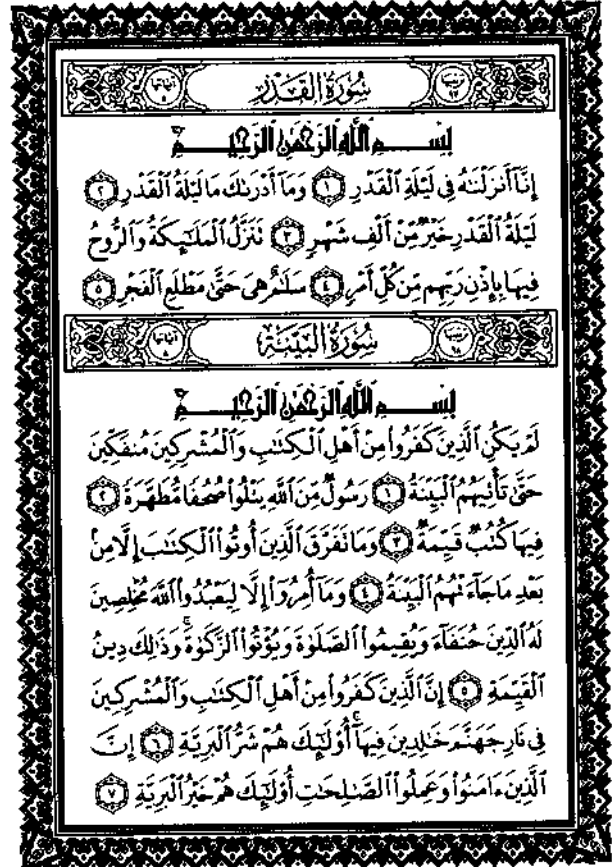 سُورَةُ القَدۡرِ
بِسۡمِ ٱللَّهِ ٱلرَّحۡمَٰنِ ٱلرَّحِيمِ
إِنَّآ أَنزَلۡنَٰهُ فِي لَيۡلَةِ ٱلۡقَدۡرِ ١ وَمَآ أَدۡرَىٰكَ مَا لَيۡلَةُ ٱلۡقَدۡرِ ٢
لَيۡلَةُ ٱلۡقَدۡرِ خَيۡرٞ مِّنۡ أَلۡفِ شَهۡرٖ ٣ تَنَزَّلُ ٱلۡمَلَٰٓئِكَةُ وَٱلرُّوحُ
فِيهَا بِإِذۡنِ رَبِّهِم مِّن كُلِّ أَمۡرٖ ٤ سَلَٰمٌ هِيَ حَتَّىٰ مَطۡلَعِ ٱلۡفَجۡرِ ٥
سُورَةُ البَيِّنَةِ
بِسۡمِ ٱللَّهِ ٱلرَّحۡمَٰنِ ٱلرَّحِيمِ
لَمۡ يَكُنِ ٱلَّذِينَ كَفَرُواْ مِنۡ أَهۡلِ ٱلۡكِتَٰبِ وَٱلۡمُشۡرِكِينَ مُنفَكِّينَ
حَتَّىٰ تَأۡتِيَهُمُ ٱلۡبَيِّنَةُ ١ رَسُولٞ مِّنَ ٱللَّهِ يَتۡلُواْ صُحُفٗا مُّطَهَّرَةٗ ٢
فِيهَا كُتُبٞ قَيِّمَةٞ ٣ وَمَا تَفَرَّقَ ٱلَّذِينَ أُوتُواْ ٱلۡكِتَٰبَ إِلَّا مِنۢ
بَعۡدِ مَا جَآءَتۡهُمُ ٱلۡبَيِّنَةُ ٤ وَمَآ أُمِرُوٓاْ إِلَّا لِيَعۡبُدُواْ ٱللَّهَ مُخۡلِصِينَ
لَهُ ٱلدِّينَ حُنَفَآءَ وَيُقِيمُواْ ٱلصَّلَوٰةَ وَيُؤۡتُواْ ٱلزَّكَوٰةَۚ وَذَٰلِكَ دِينُ
ٱلۡقَيِّمَةِ ٥ إِنَّ ٱلَّذِينَ كَفَرُواْ مِنۡ أَهۡلِ ٱلۡكِتَٰبِ وَٱلۡمُشۡرِكِينَ
فِي نَارِ جَهَنَّمَ خَٰلِدِينَ فِيهَآۚ أُوْلَٰٓئِكَ هُمۡ شَرُّ ٱلۡبَرِيَّةِ ٦ إِنَّ
ٱلَّذِينَ ءَامَنُواْ وَعَمِلُواْ ٱلصَّٰلِحَٰتِ أُوْلَٰٓئِكَ هُمۡ خَيۡرُ ٱلۡبَرِيَّةِ ٧